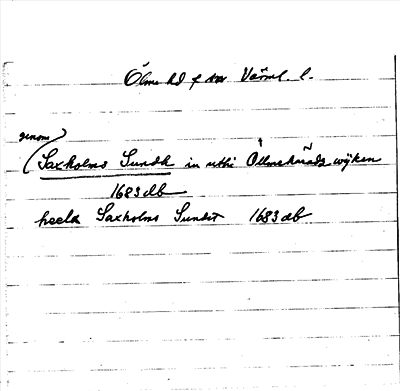 Ölme hd Värml. l.
genom
(Saxholms Sundh in uthi Ölmehäradz wijken
1683 db
heela Saxholms Sundet 1683 db